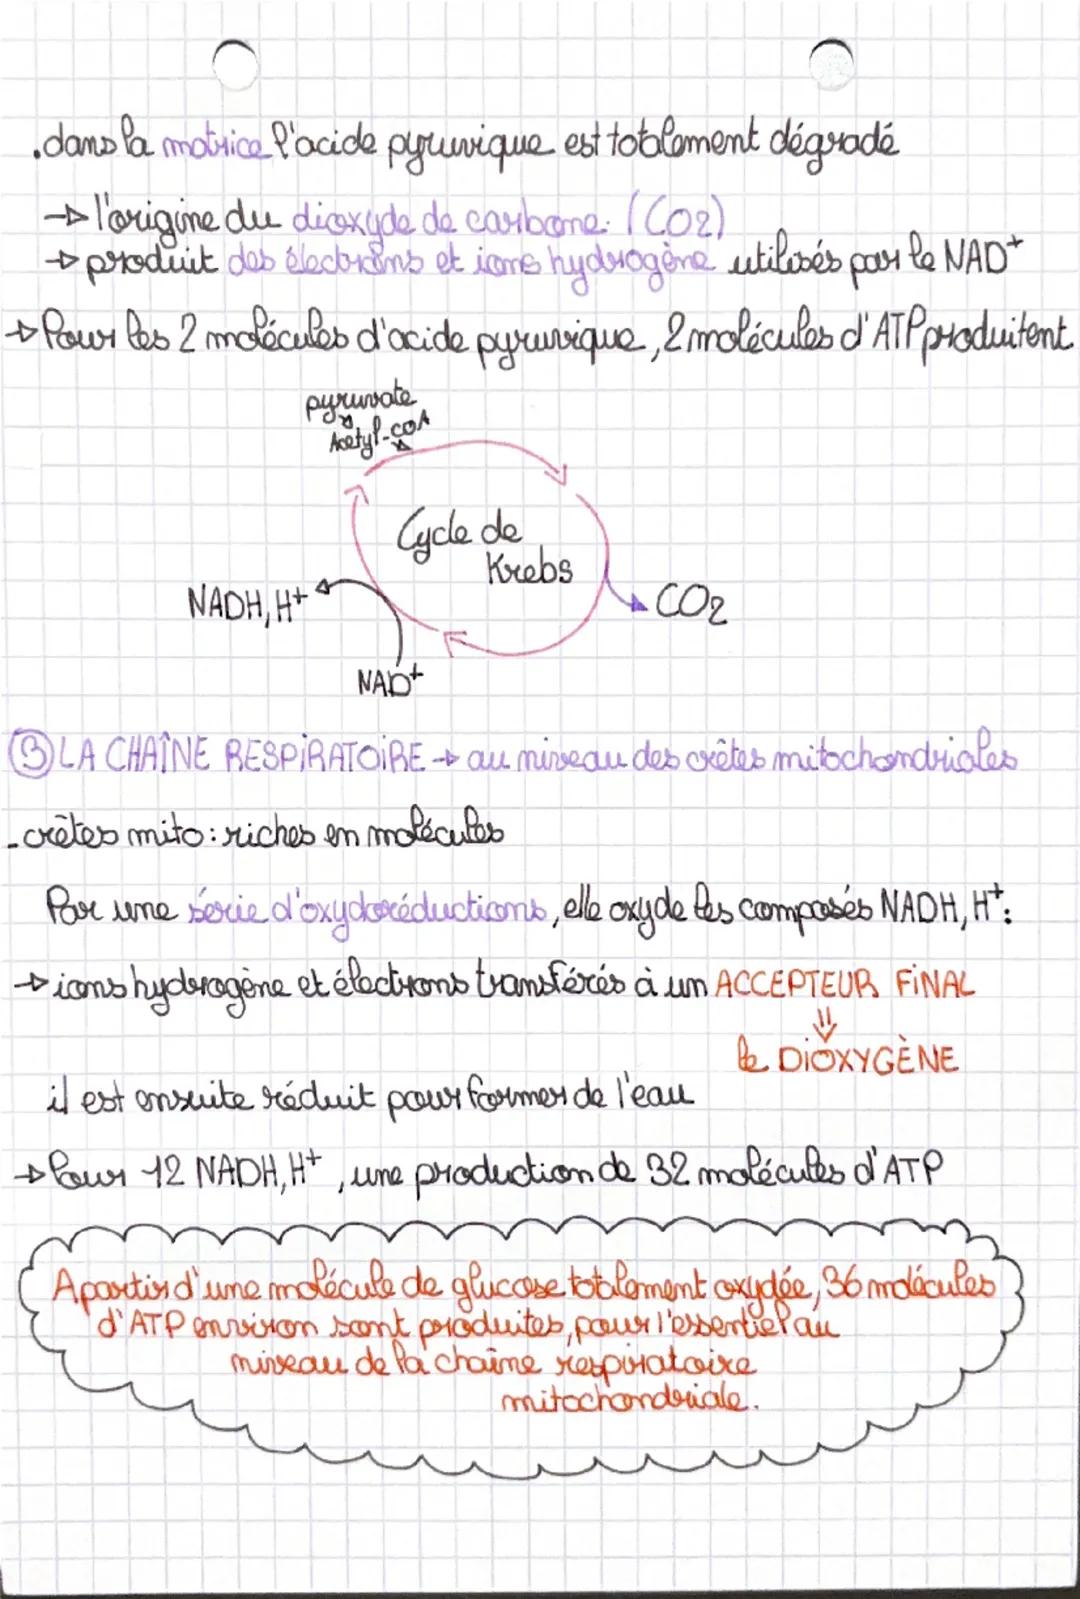 .dans la matrice l'acide pyruvique est totalement dégradé
→ l'origine du dioxyde de carbone. (CO2)
→ produit des électrons et ions hydrogène utilisés par le NAD+
→ Pour les 2 molécules d'acide pyruvique, 2 molécules d'ATP produitent.
pyruvate
Acetyl-coA
Cycle de
Krebs
NADH, H+
CO2
NAD+
③ LA CHAÎNE RESPIRATOIRE → au niveau des crêtes mitochondriales
- crêtes mito : riches en molécules
Par une série d'oxydoréductions, elle oxyde les composés NADH, H+:
→ ions hydrogène et électrons transférés à un ACCEPTEUR FINAL
⇓
le DIOXYGÈNE
il est ensuite réduit pour former de l'eau
→ Pour 12 NADH, H+, une production de 32 molécules d'ATP
A partir d'une molécule de glucose totalement oxydée, 36 molécules
d'ATP environ sont produites, pour l'essentiel au
niveau de la chaîne respiratoire
mitochondriale.